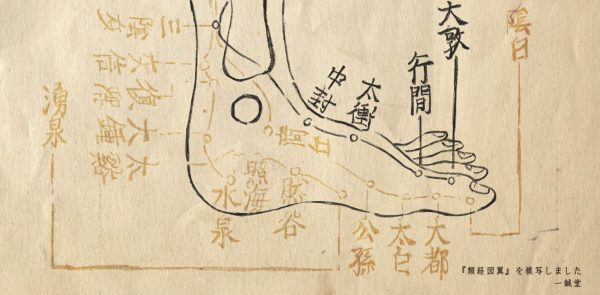 陰白
大敦
行間
太衝
中封
三陰交
交信
復溜
大鍾
太谿
湧泉
商丘
照海
水泉
然谷
公孫
太白
大都
『類経図翼』を模写しました
一鍼堂